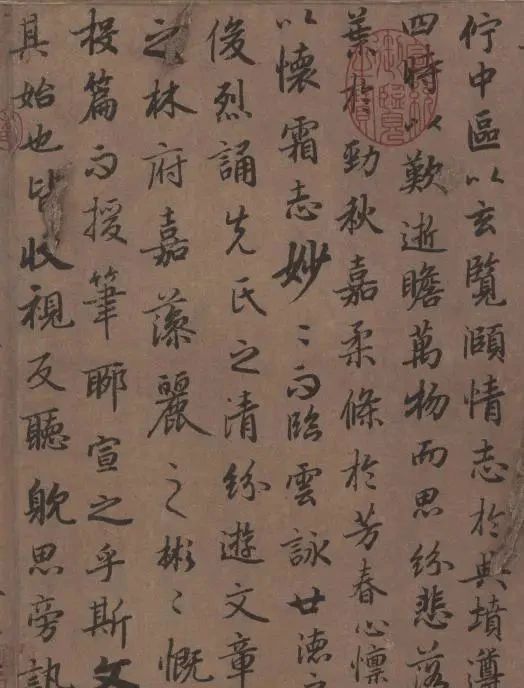 佇中區以玄覽頤情志於典墳遵
四時以歎逝瞻萬物而思紛悲落
葉於勁秋嘉柔條於芳春心懍
以懷霜志妙〻而臨雲詠世德之
俊烈誦先氏之清紛遊文章
之林府嘉藻麗之彬〻慨
投篇而授筆聊宣之乎斯文
其始也皆收視反聽躭思旁訊